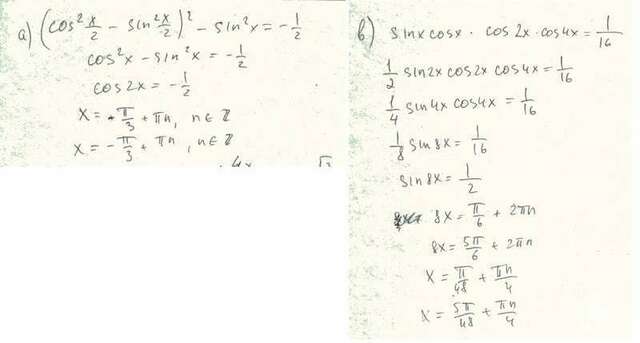 а) (cos² x/2 - sin² x/2)² - sin²x = -1/2
cos²x - sin²x = -1/2
cos2x = -1/2
x = π/3 + πn, n∈ℤ
x = -π/3 + πn, n∈ℤ
в) sinx cosx · cos 2x · cos4x = 1/16
1/2 sin2x cos2x cos4x = 1/16
1/4 sin4x cos4x = 1/16
1/8 sin8x = 1/16
sin8x = 1/2
8x = π/6 + 2πn
8x = 5π/6 + 2πn
x = π/48 + πn/4
x = 5π/48 + πn/4